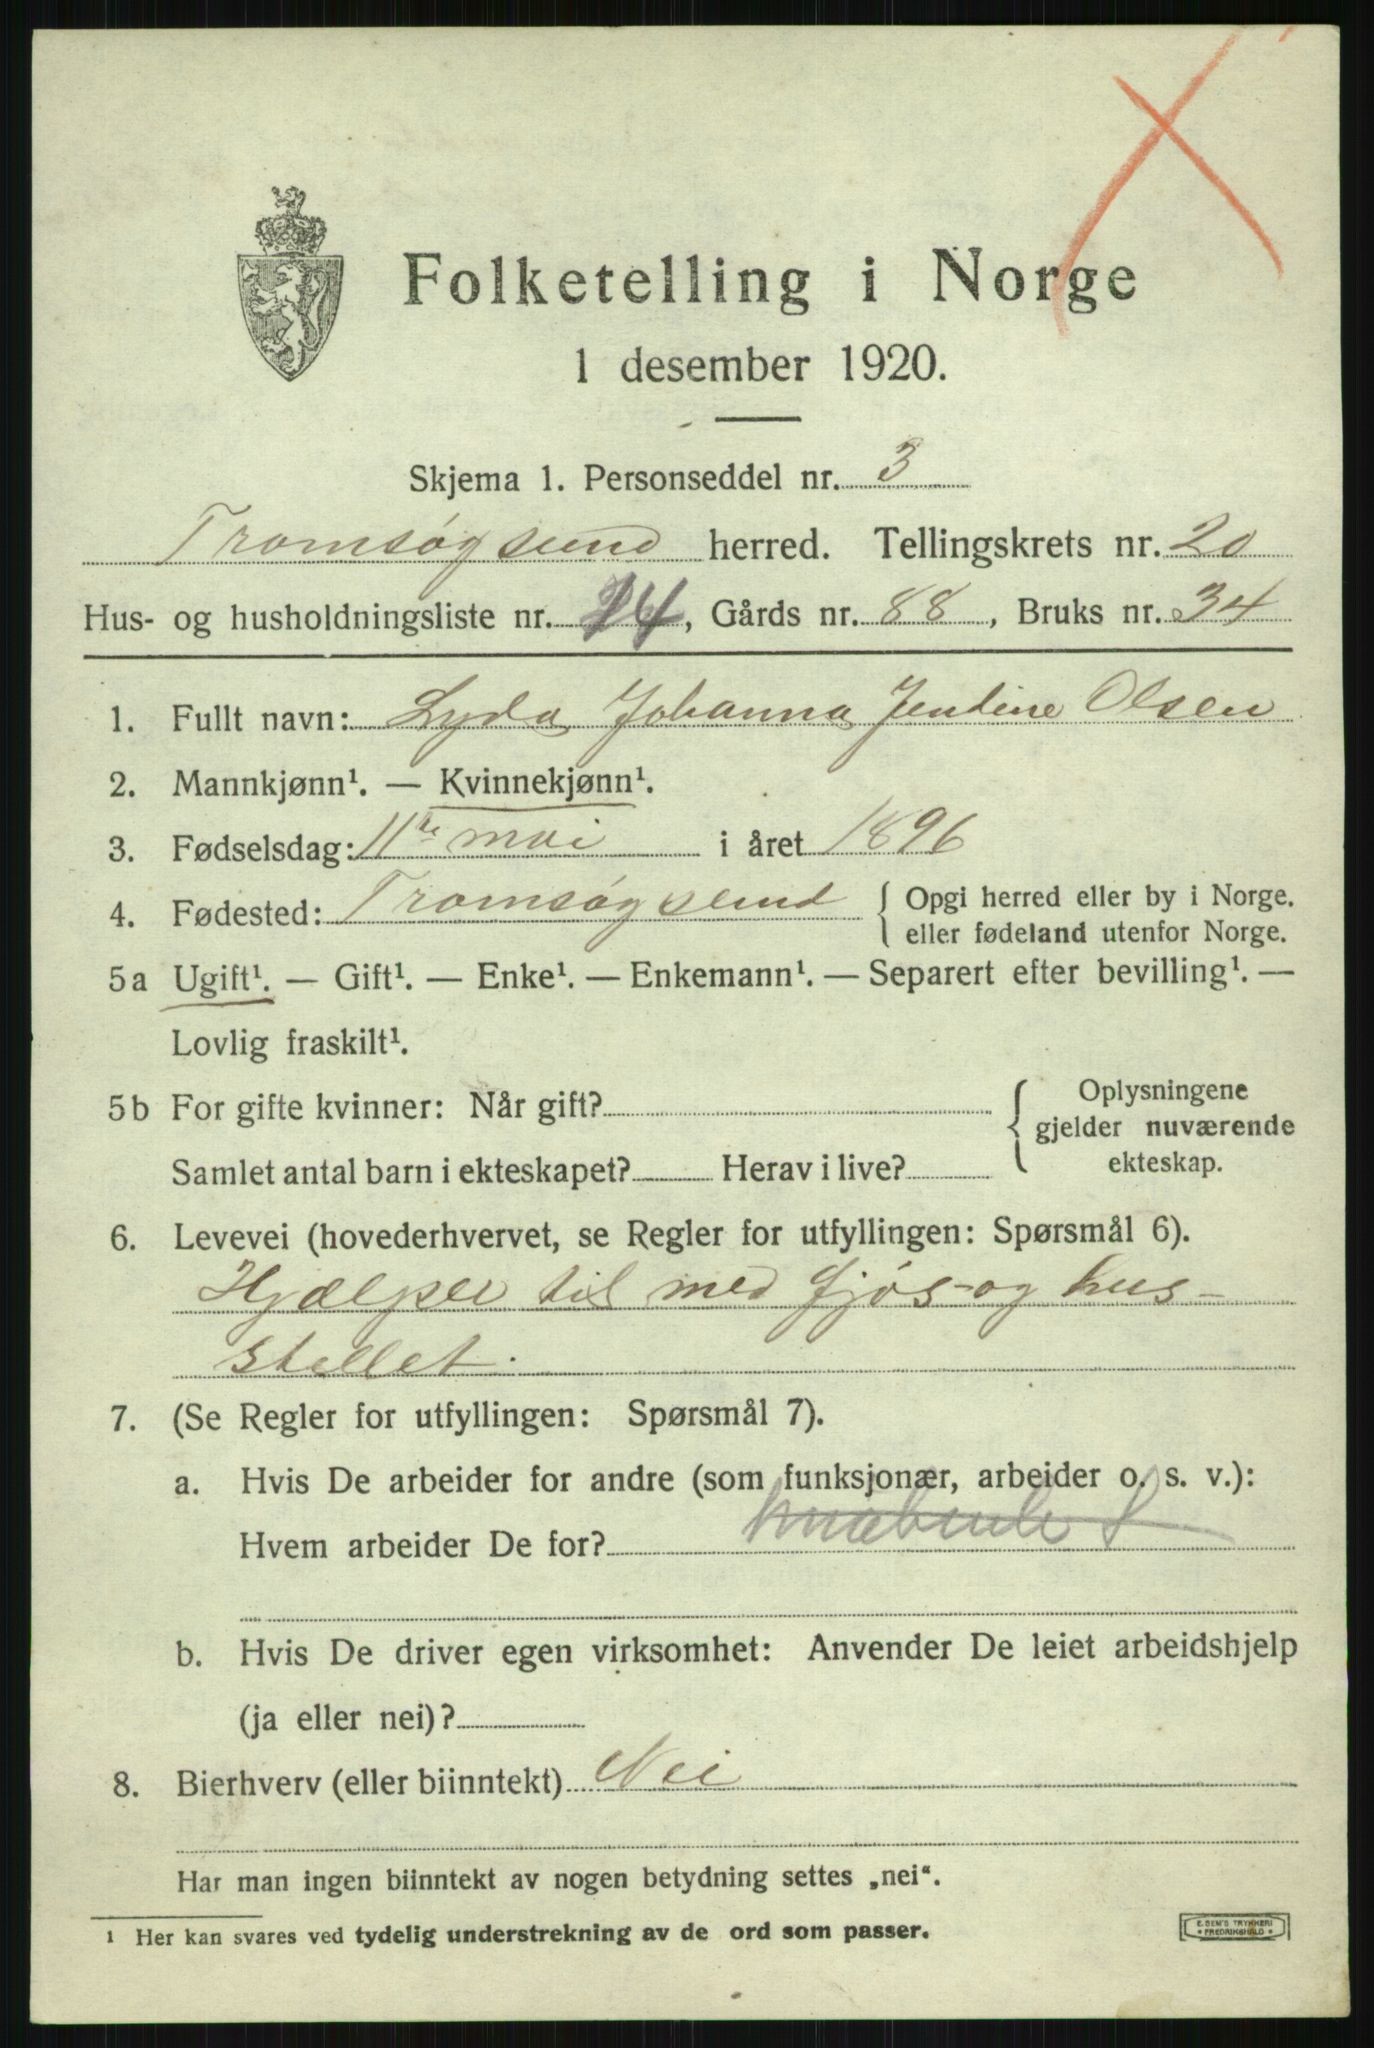 Folketelling i Norge
1 desember 1920.
Skjema 1. Personseddel nr. 3
Tromsøysund herred. Tellingskrets nr. 20
Hus- og husholdningsliste nr. 14, Gårds nr. 88, Bruks nr. 34
1. Fullt navn: Lyda Johanna Jendine Olsen
2. Mannkjønn¹. — Kvinnekjønn¹.
3. Fødselsdag: 11te mai i året 1896
4. Fødested: Tromsøysund { Opgi herred eller by i Norge.
eller fødeland utenfor Norge.
5a Ugift¹. — Gift¹. — Enke¹. — Enkemann¹. — Separert efter bevilling¹. —
Lovlig fraskilt¹.
5b For gifte kvinner: Når gift? { Oplysningene
gjelder nuværende
Samlet antal barn i ekteskapet? Herav i live? ekteskap.
6. Levevei (hovederhvervet, se Regler for utfyllingen: Spørsmål 6).
Hjælper til med fjøs- og hus-
stellet.
7. (Se Regler for utfyllingen: Spørsmål 7).
a. Hvis De arbeider for andre (som funksjonær, arbeider o. s. v.):
Hvem arbeider De for?
b. Hvis De driver egen virksomhet: Anvender De leiet arbeidshjelp
(ja eller nei)?
8. Bierhverv (eller biinntekt) Nei
Har man ingen biinntekt av nogen betydning settes „nei“.
¹ Her kan svares ved tydelig understrekning av de ord som passer.
E. SEM'S TRYKKERI
FREDRIKSHALD